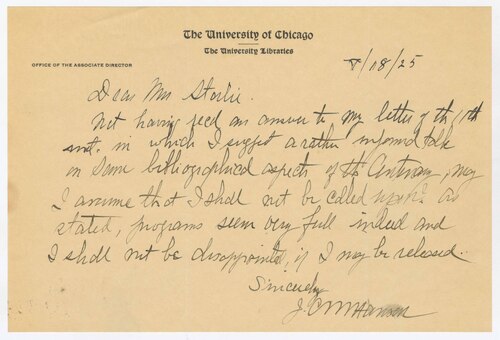 The University of Chicago
The University Libraries
OFFICE OF THE ASSOCIATE DIRECTOR
/18/25
Dear Mr
Not having recd an answer to my letter of the 11th
inst. in which I suggest a rather informal talk
on some bibliographical aspects of the, may
I assume that I shall not be called upon? As
stated, programs seem very full indeed and
I shall not be disappointed if I may be released.
Sincerely
J.C.M. Hanson